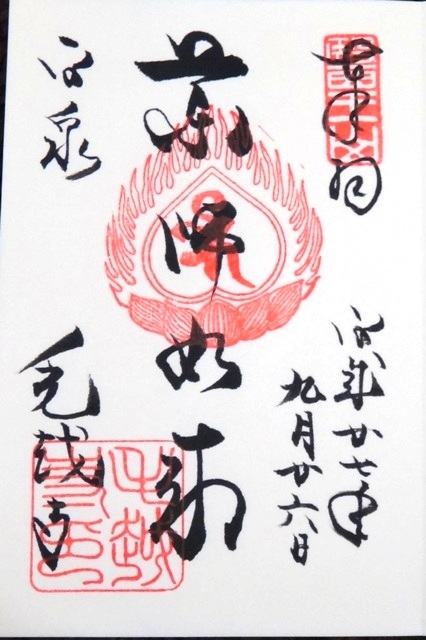 奉拝
平成廿七年
九月廿六日
薬師如来
平泉
毛越寺